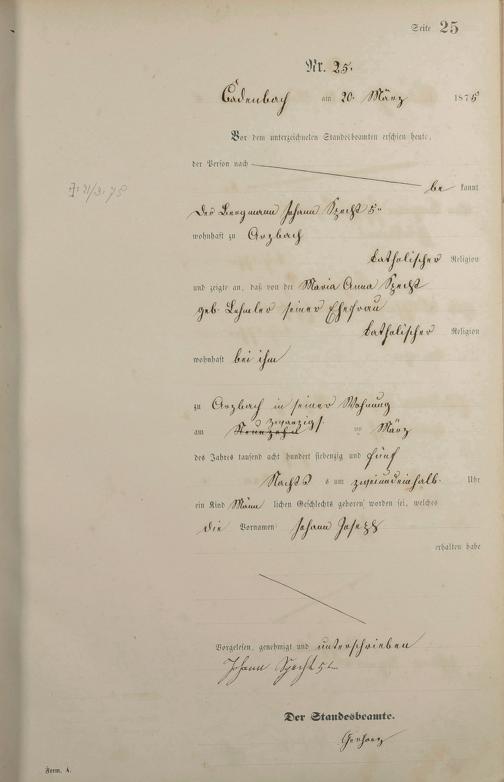 Seite 25
Nr. 25.
Cadenbach am 20. März 1875
Vor dem unterzeichneten Standesbeamten erschien heute,
der Person nach
be kannt
der Bergmann Johann Specht 5.
wohnhaft zu Arzbach
katholischer Religion
und zeigte an, daß von der Maria Anna Specht
geb. Lehmler seiner Ehefrau
katholischer Religion
wohnhaft bei ihm
zu Arzbach in seiner Wohnung
zwanzigs.
am Neunzehn März
des Jahres tausend acht hundert siebenzig und fünf
Nachts um zweiundeinhalb Uhr
ein Kind Männ lichen Geschlechts geboren worden sei, welches
die Vornamen Johann Joseph
erhalten habe
Vorgelesen, genehmigt und unterschrieben
Johann Specht 5.
Der Standesbeamte.
Form. A.